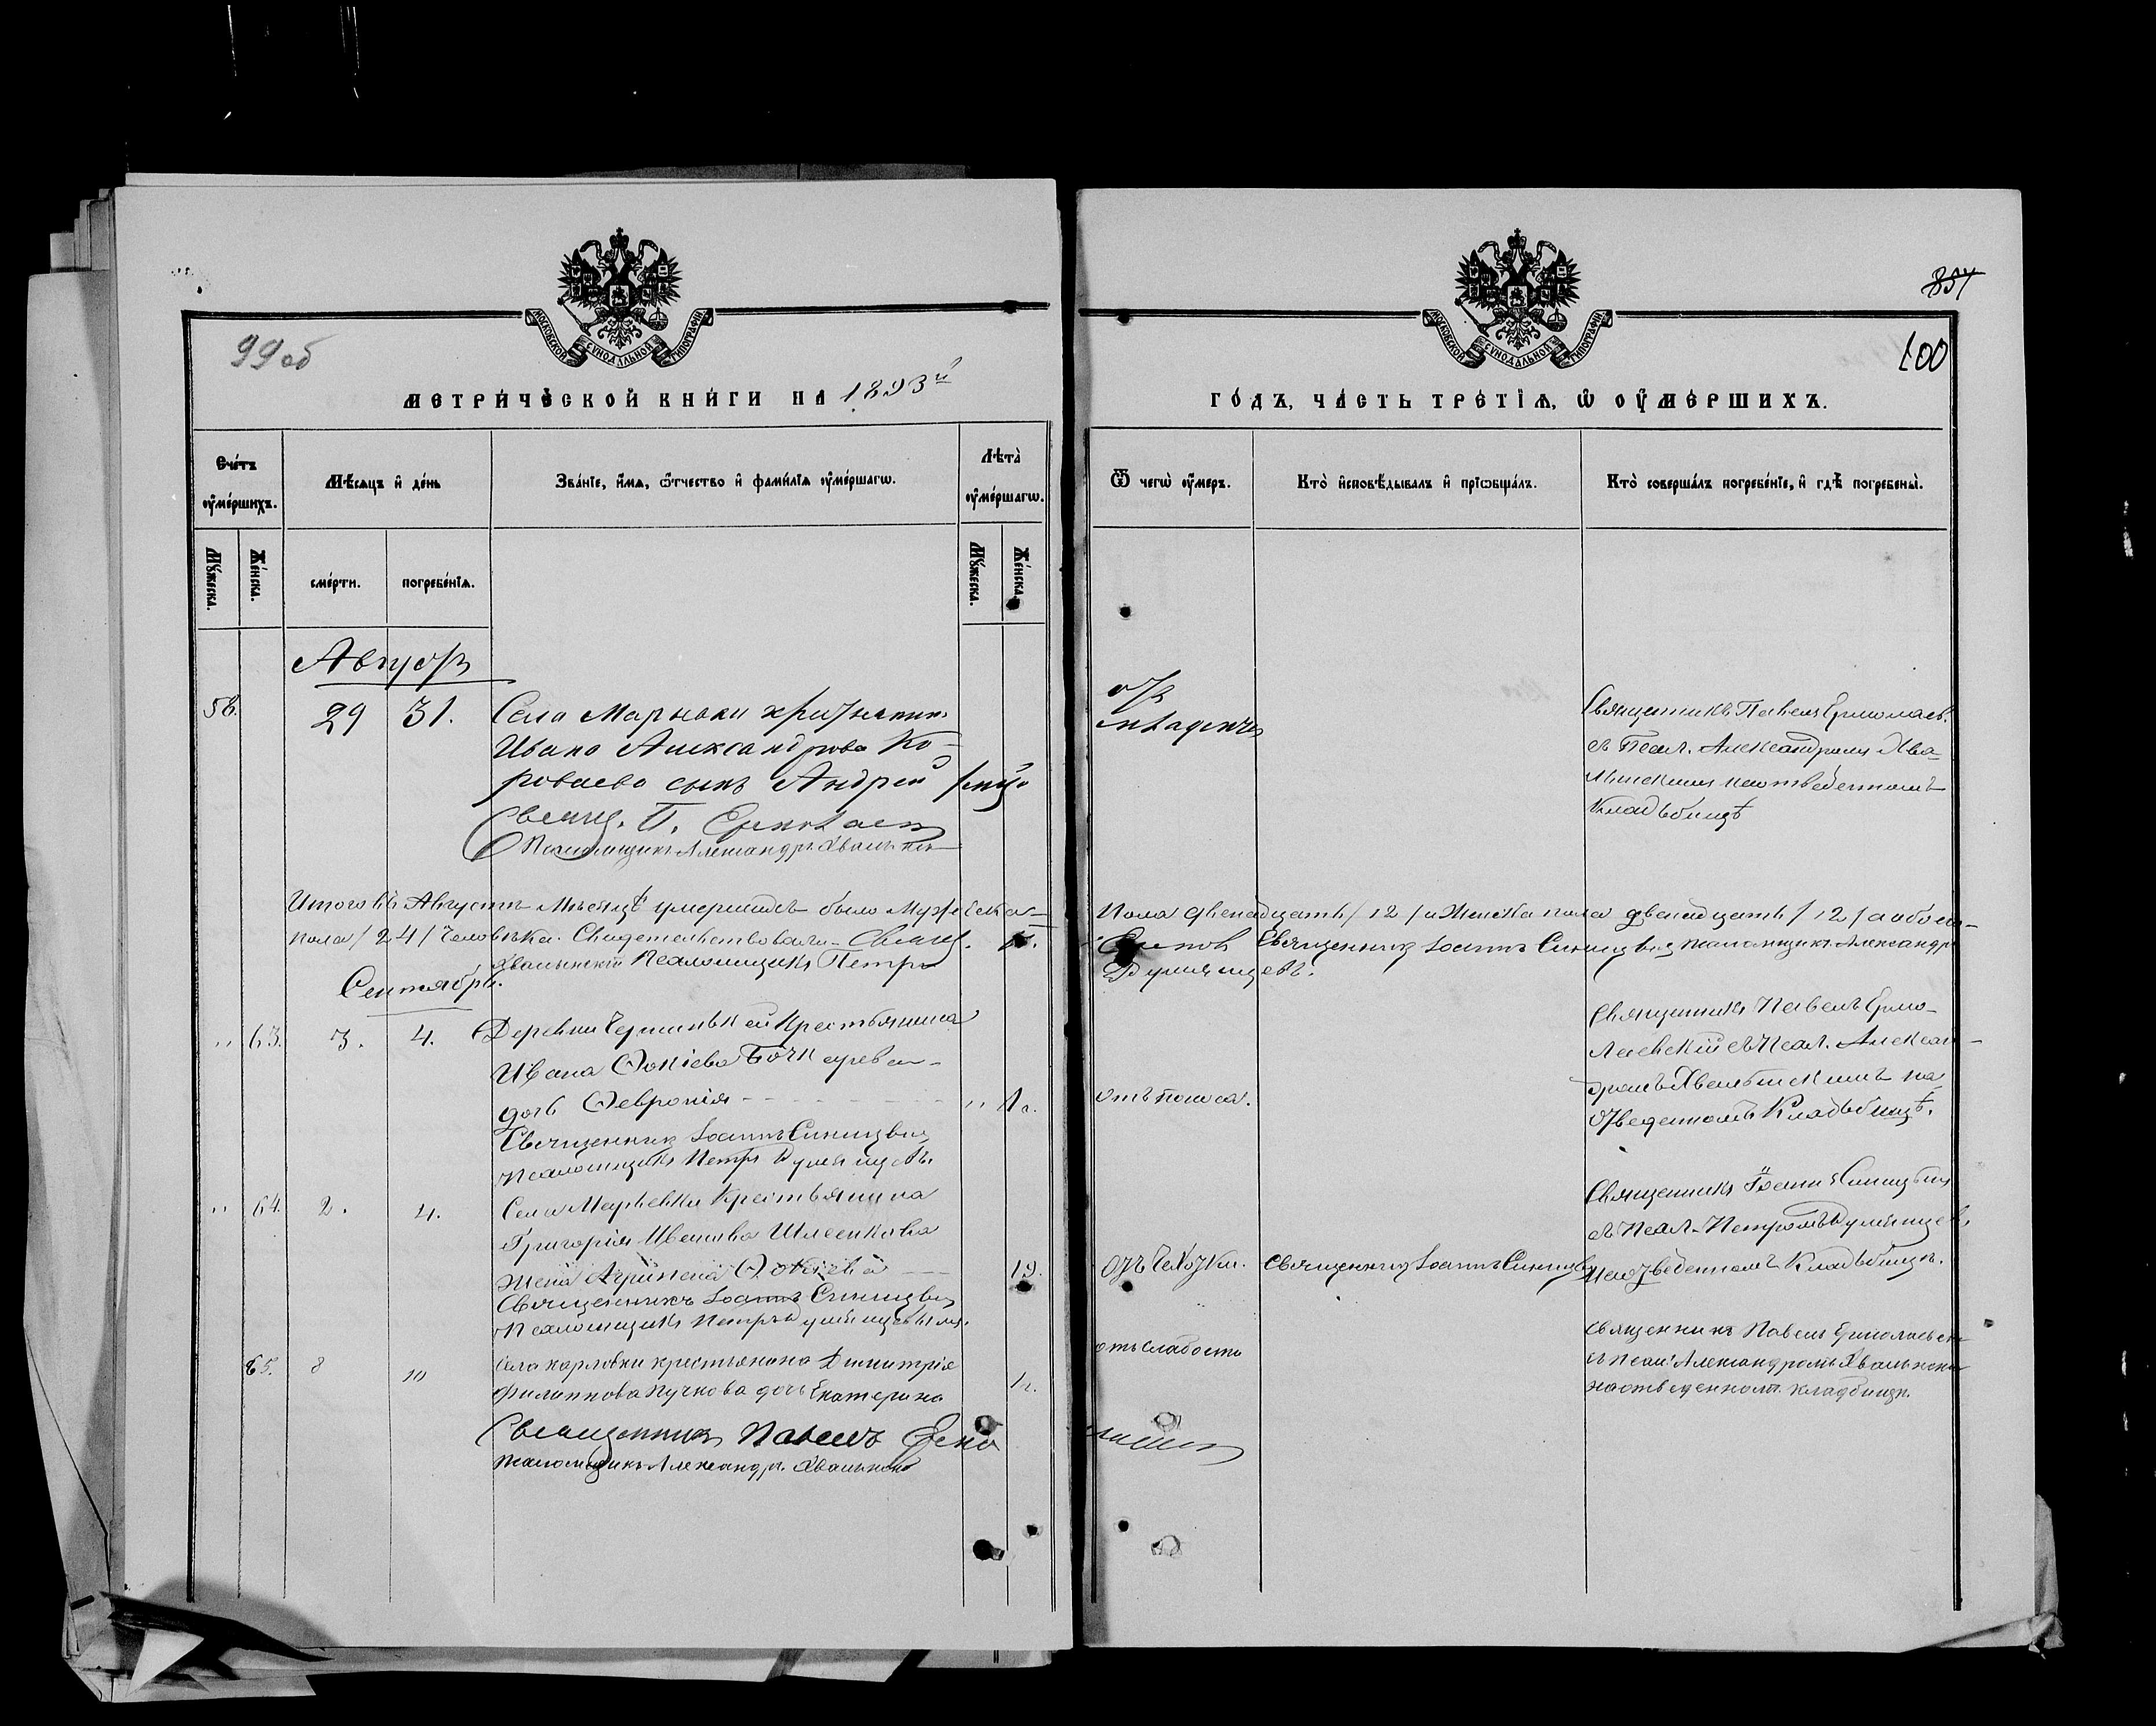 99 об
МОСКОВСКОЙ СУНОДАЛЬНОЙ ТИПОГРАФІИ
МЕТРИЧЕСКОЙ КНИГИ НА 1893й
Счетъ оумершихъ.
Мѣсяцъ и день
Званіе, имя, ѿчество и фамилія оумершагѡ.
Лѣта оумершагѡ.
Мужеска.
Женска.
смерти.
погребенія.
Мужеска.
Женска.
Августъ
58. 29 31. Села Марьевки
Ивана Александрова Ко-
роваева сынъ Андрей
Свящ. П. Ермолаев
Псаломщикъ Александръ
Итого въ Августѣ Мѣсяцѣ умершихъ было Мужеска
пола /24/ Человѣка. Свидетельствовали Свящ. П.
Псаломщикъ Петръ
Сентябрь.
" 63. 3. 4. Деревни Крестьянина
Ивана Фокіева
дочь Февронія " 1 г.
Священникъ Іоаннъ Синицынъ
Псаломщикъ Петръ Румянцевъ.
" 64. 2. 4. Села Марьевки Крестьянина
Григорія Иванова
жена Агрипена Фокіева 19.
Священникъ Іоаннъ Синицынъ
Псаломщикъ Петръ Румянцевъ
65. 8 10 Села карловки крестьянина Димитрія
Филиппова Пучкова дочь Екатерина
Священникъ Павелъ Ермо
псаломщикъ Александръ
857
100
МОСКОВСКОЙ СУНОДАЛЬНОЙ ТИПОГРАФІИ
ГОДЪ, ЧАСТЬ ТРЕТІЯ, Ѡ ОУМЕРШИХЪ.
Ѿ чегѡ оумеръ.
Кто исповѣдывалъ и пріѡбщалъ.
Кто совершалъ погребеніе, и гдѣ погребены.
отъ
младенч
Священникъ Павелъ Ермолаев.
съ Псал. Александромъ Хва-
лынскимъ на отведенномъ
Кладъбищѣ
Пола двенадцать /12/ и Женска пола двенадцать /12/ а обоего
Священникъ Іоаннъ Синицынъ псаломщикъ Александръ
Румянцевъ.
отъ поноса.
Священникъ Павелъ Ермо-
лаевскій съ Псал. Алексан-
дромъ Хвалынскимъ на
отведенномъ Кладъбищѣ.
отъ Чахотки. Священникъ Іоаннъ Синицынъ
Священникъ Іоаннъ Синицынъ
съ Псал. Петромъ Румянцев
на отведенномъ Кладъбищѣ.
отъ слабости
священникъ Павелъ Ермолаевск
съ псал. Александромъ Хвалынски
на отведенномъ кладбищѣ.